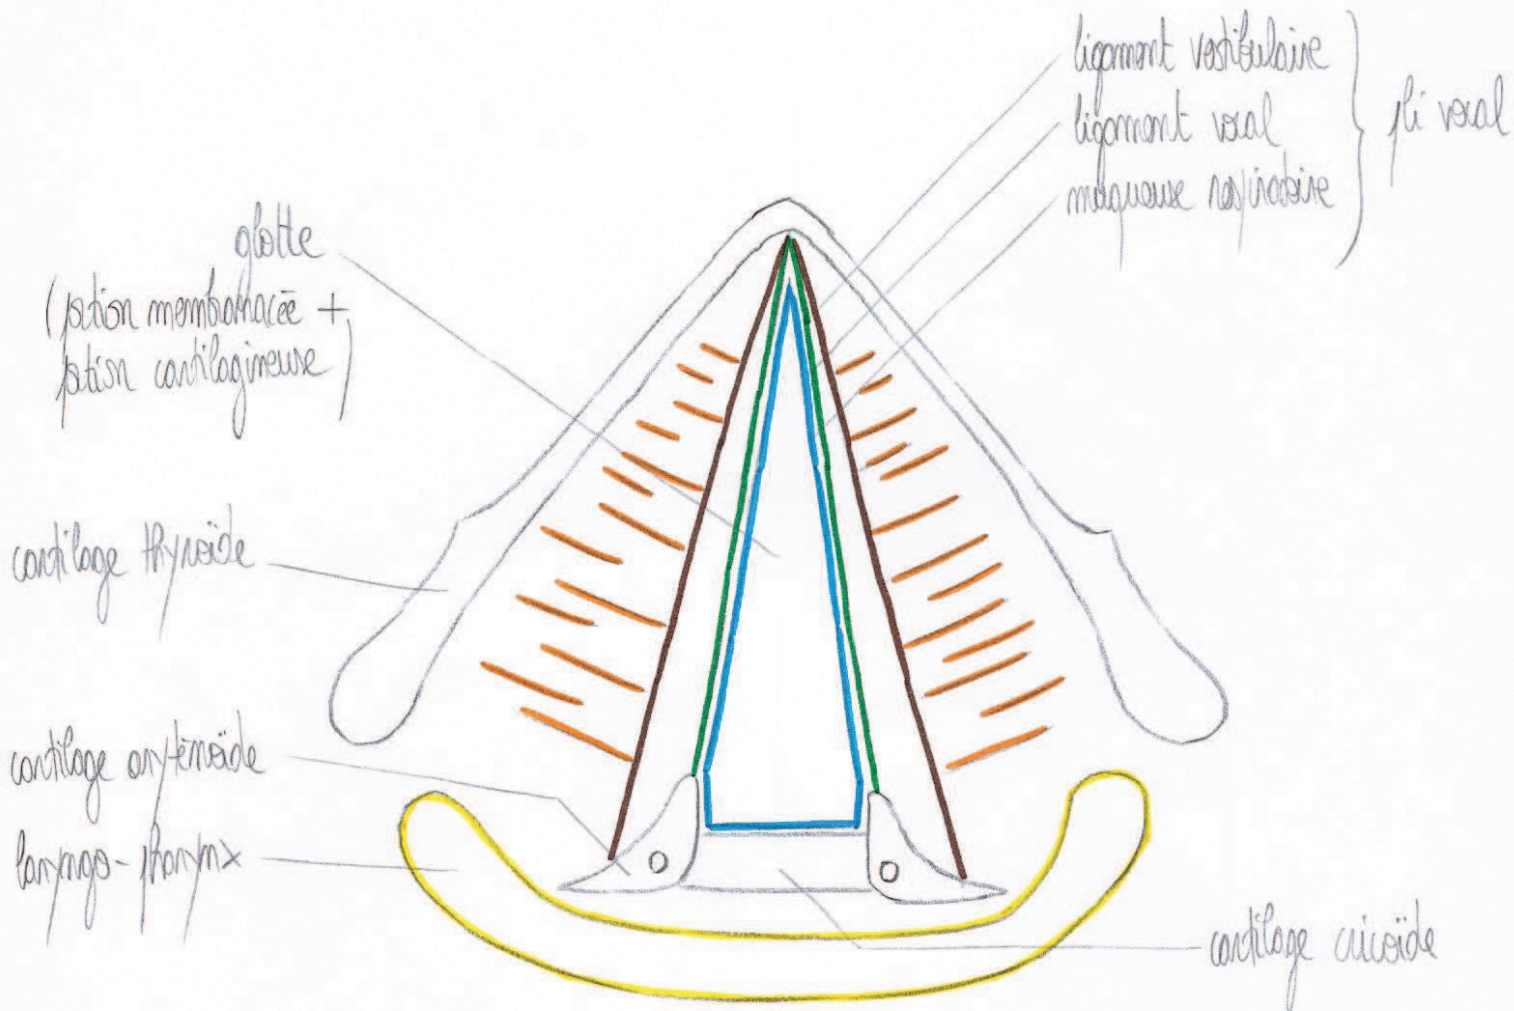 ligament vestibulaire
ligament vocal
muqueuse respiratoire
pli vocal
glotte
(portion membranacée +
portion cartilagineuse)
cartilage thyroïde
cartilage aryténoïde
laryngo-pharynx
cartilage cricoïde